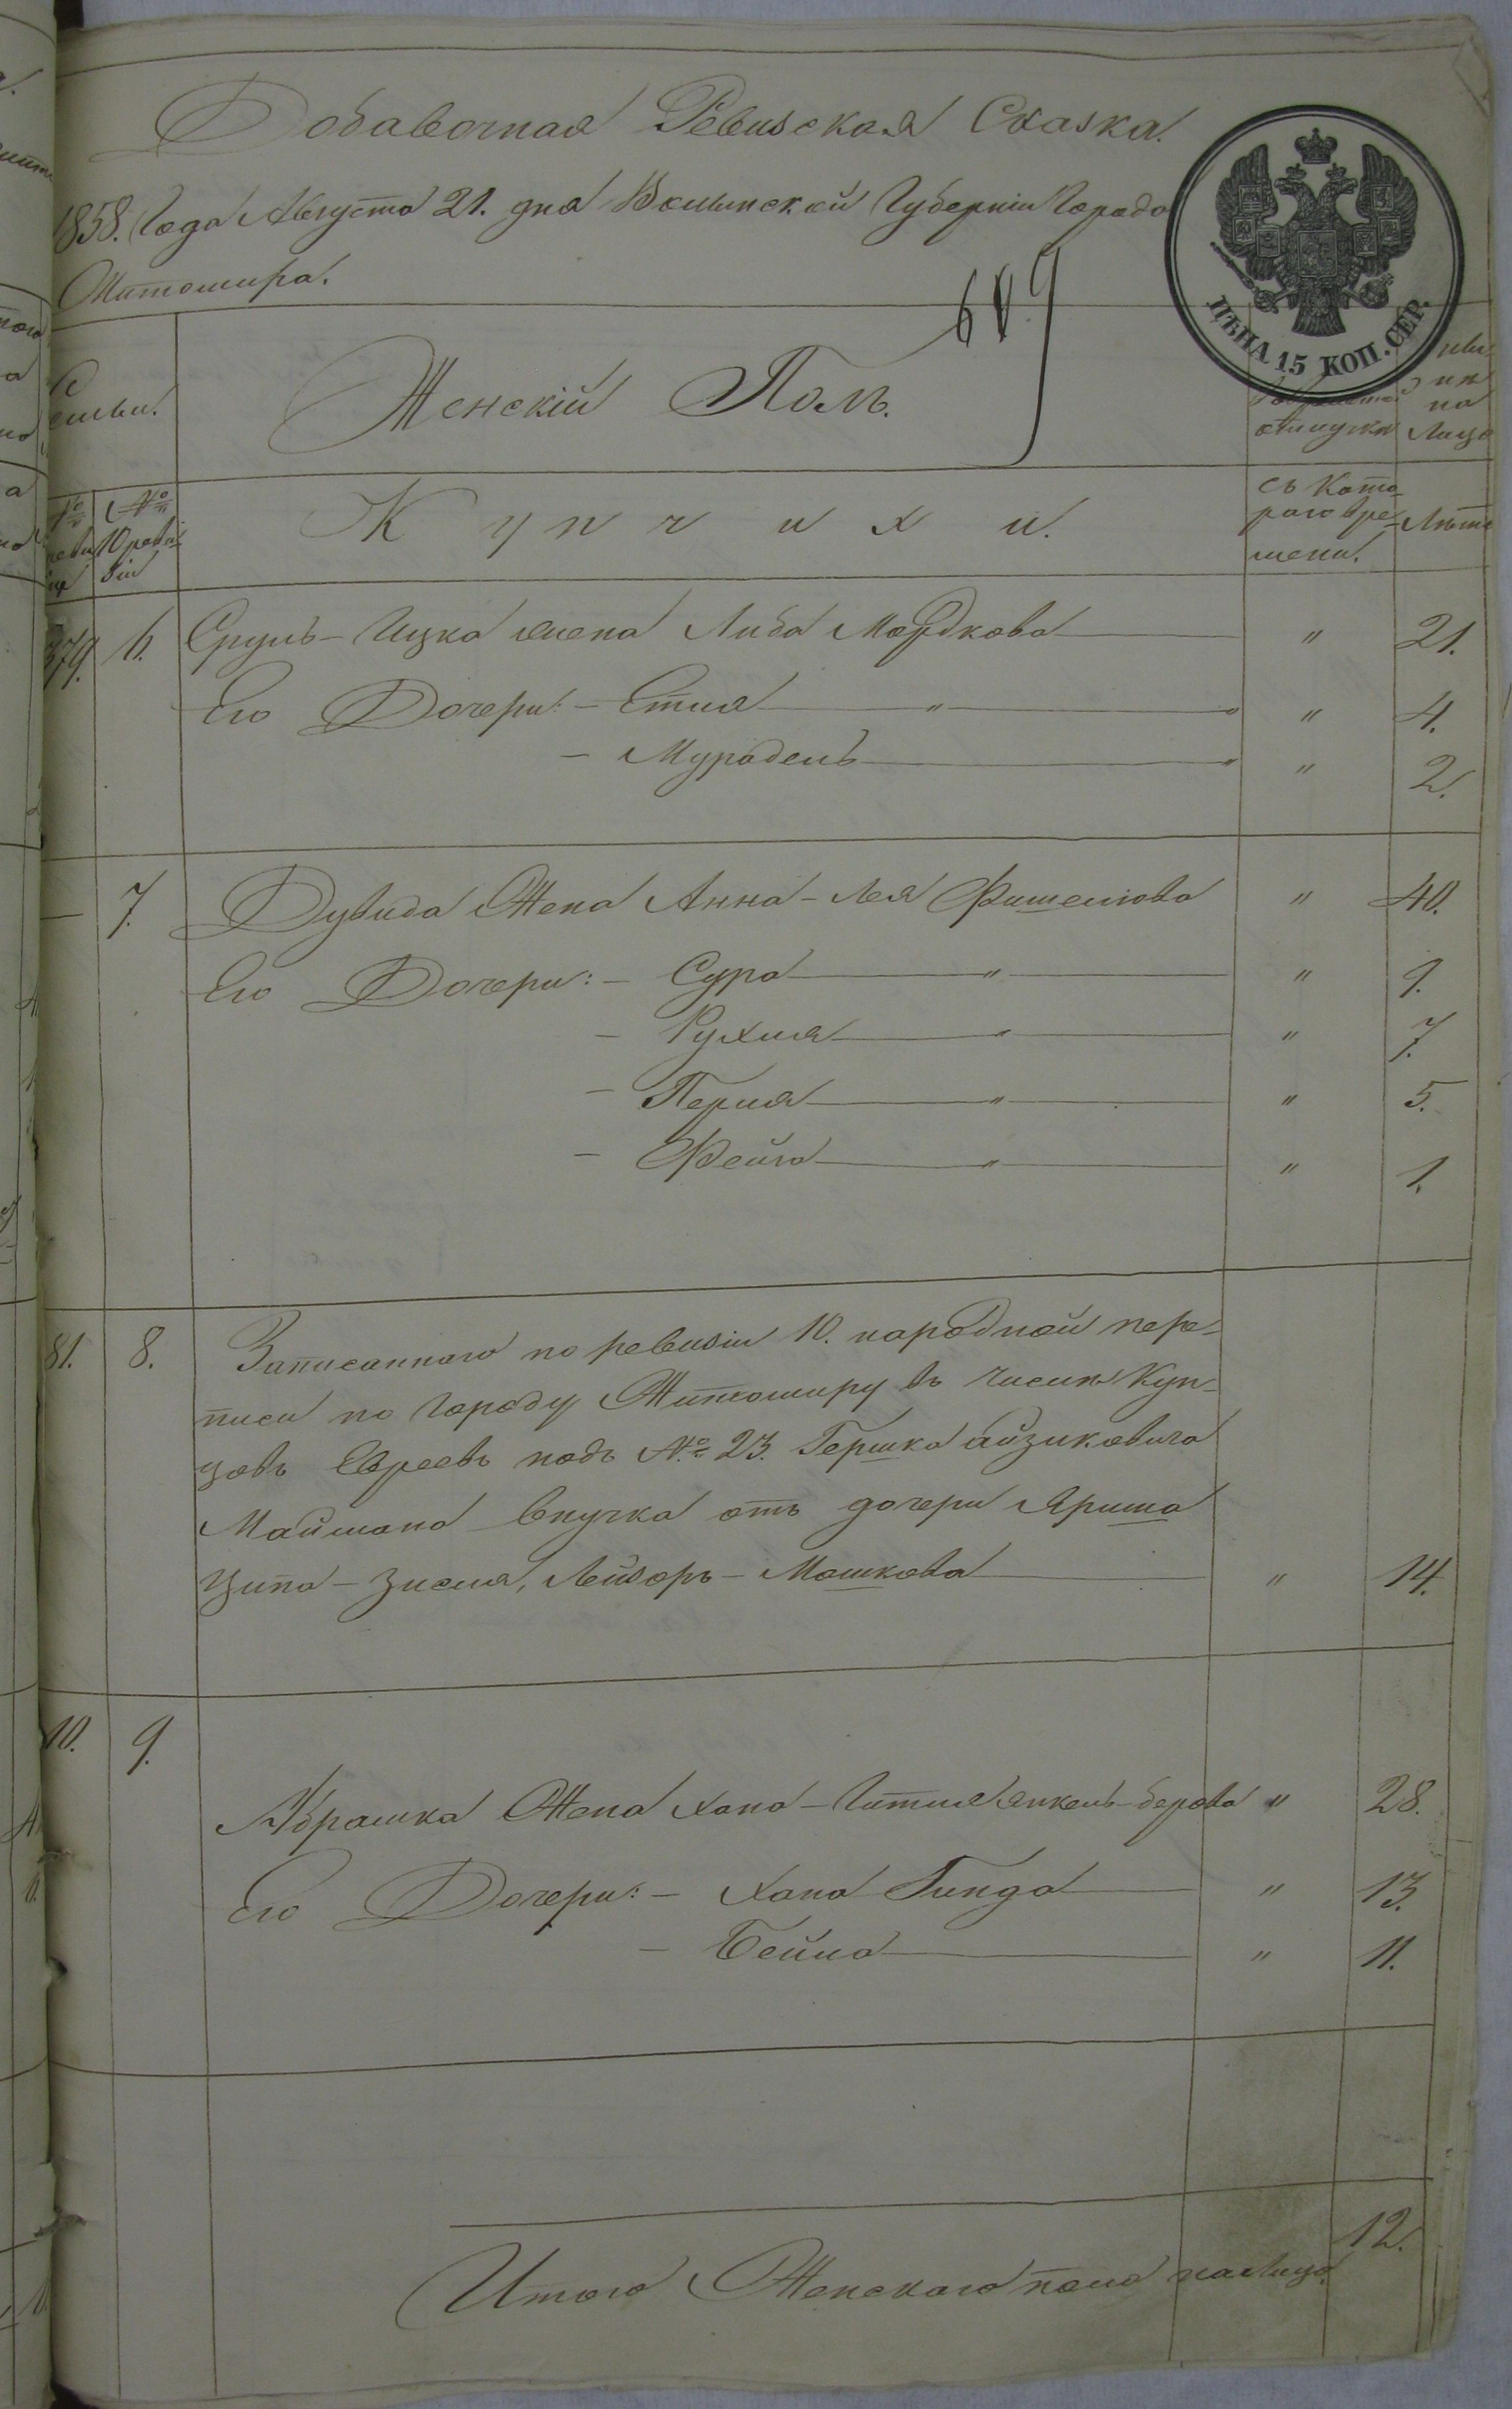 Добавочная Ревизская Сказка.
1858. Года Августа 21. дня Волынской Губерніи Города
Житомира.
ЦѢНА 15 КОП. СЕР.
609
Семьи.
Женскій Полъ.
отлучкѣ
на
Лицо
№
№
10 реви
зіи
К у п ч и х и.
съ Кото-
раго вре-
мени.
Лѣта
379. 6. Сруль-Ицка жена Либа Мордкова " 21.
Его Дочери: - Етля " " 4.
- Мурадель " " 2.
7. Дувида Жена Анна-Лея Фишелова " 40.
Его Дочери: - Сура " " 9.
- Рухля " " 7.
- Перля " " 5.
- Фейга " " 1.
81. 8. Записаннаго по ревизіи 10. народной пере-
писи по Городу Житомиру въ числѣ Куп-
цовъ Евреевъ подъ №. 23. Гершка Айзиковича
Маймана внучка отъ дочери Ярита
Ципа-Зисля, Лейзоръ-Мошкова " 14.
10. 9.
Абрашка Жена Хана-Гитля Янкель-Берова " 28.
Его Дочери: - Хана Гинда " 13.
- Бейла " 11.
12.
Итого Женскаго пола налицо